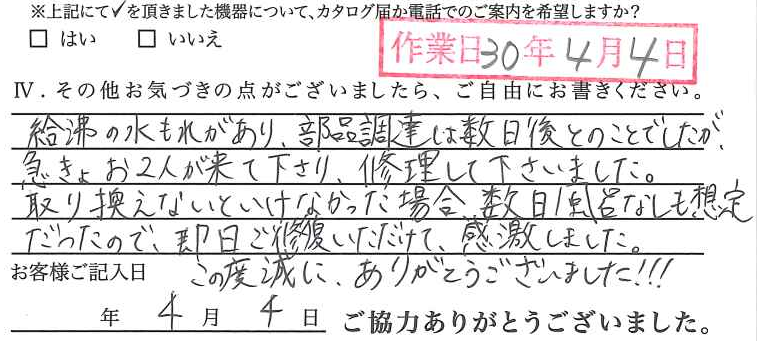 ※上記にて✓を頂きました機器について、カタログ届か電話でのご案内を希望しますか？
□ はい □ いいえ
作業日30年4月4日
Ⅳ．その他お気づきの点がございましたら、ご自由にお書きください。
給沸の水もれがあり、部品調達は数日後とのことでしたが、
急きょお2人が来て下さり、修理して下さいました。
取り換えないといけなかった場合、数日風呂なしも想定
だったので、即日ご修復いただけて、感激しました。
この度誠に、ありがとうございました!!!
お客様ご記入日
年 4月 4日
ご協力ありがとうございました。